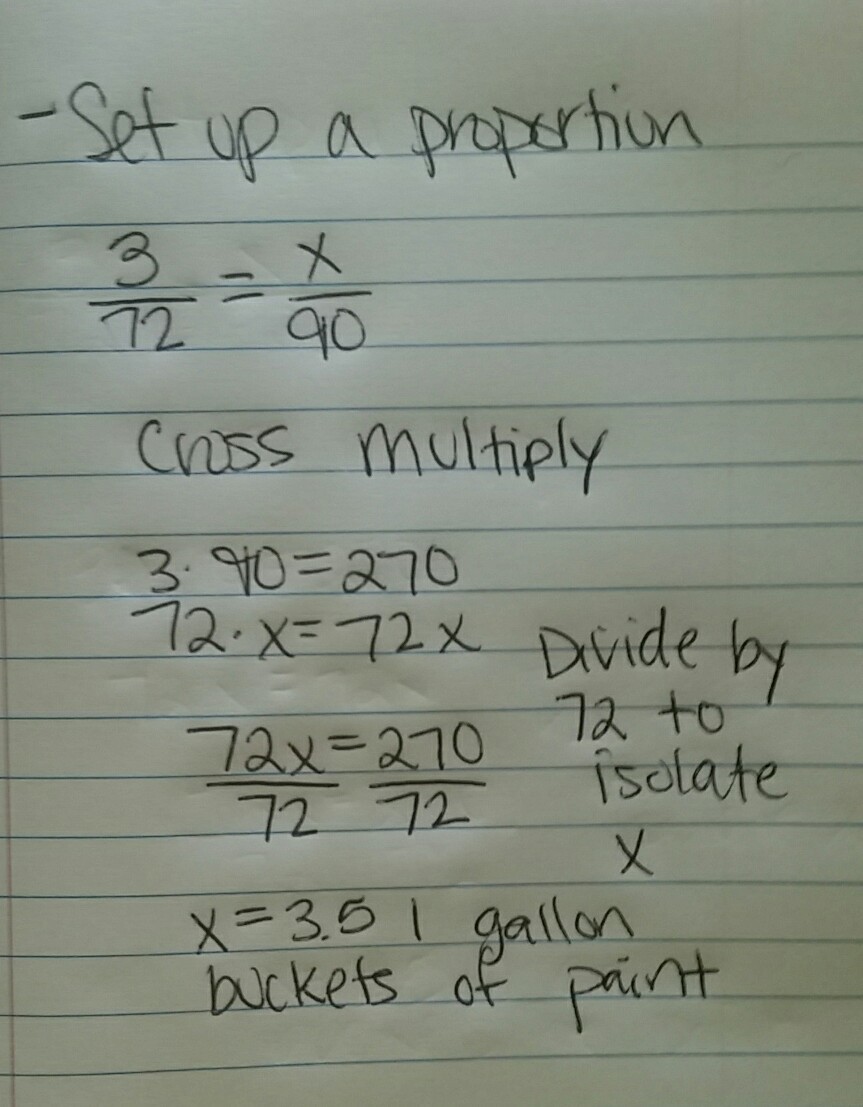 - Set up a proportion
3/72 = x/90
Cross multiply
3 · 90 = 270
72 · x = 72x
Divide by
72 to
isolate
x
72x/72 = 270/72
x = 3.5 1 gallon
buckets of paint